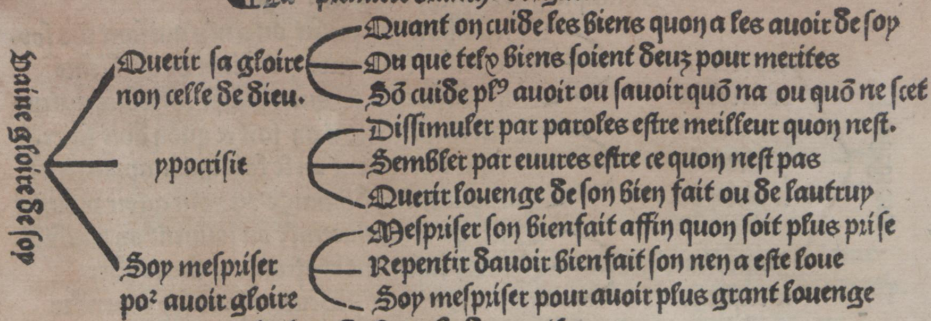 Vaine gloire de soy
Querir sa gloire
non celle de dieu.
Quant on cuide les biens quon a les avoir de soy
Ou que telz biens soient deuz pour merites
Sō cuide plꝰ avoir ou savoir quō na ou quō ne scet
ypocrisie
Dissimuler par paroles estre meilleur quon nest.
Sembler par euures estre ce quon nest pas
Querir louenge de son bien fait ou de lautruy
Soy mespriser
poꝛ avoir gloire
Mespriser son bienfait affin quon soit plus prise
Repentir davoir bienfait son nen a este loue
Soy mespriser pour avoir plus grant louenge